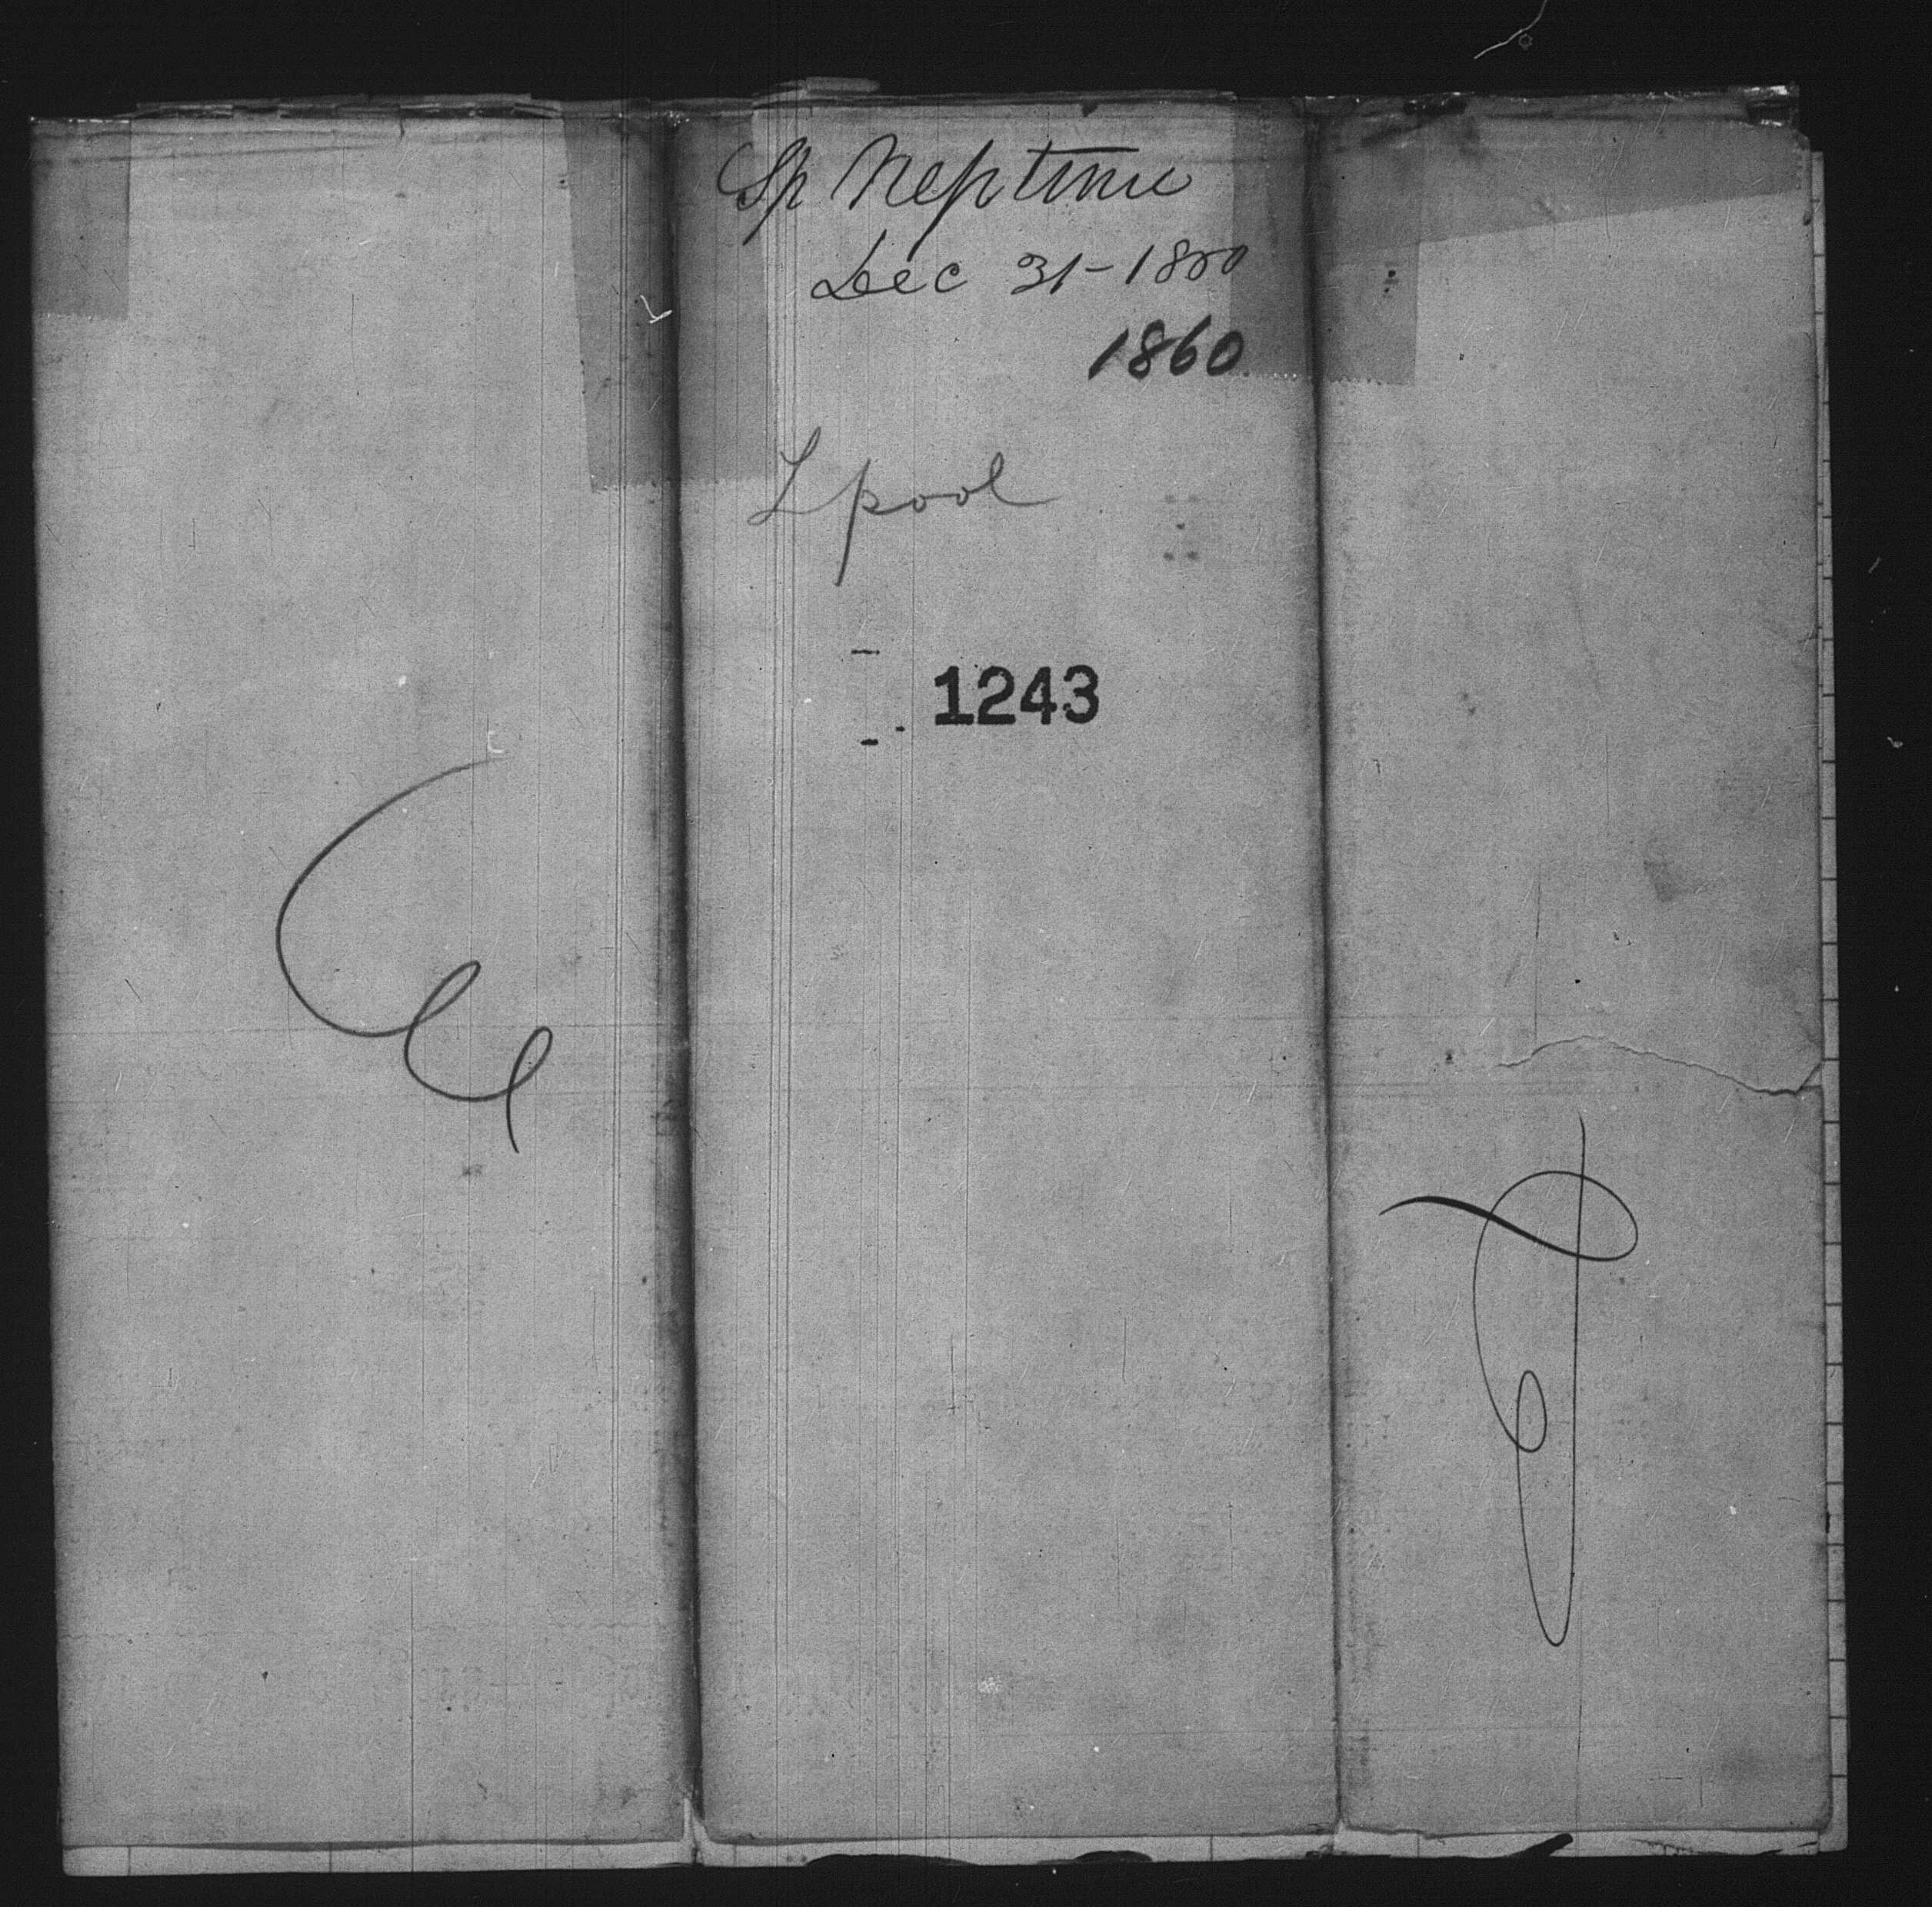 Sp Neptune
Dec 31-1860
1860
Lpool
1243